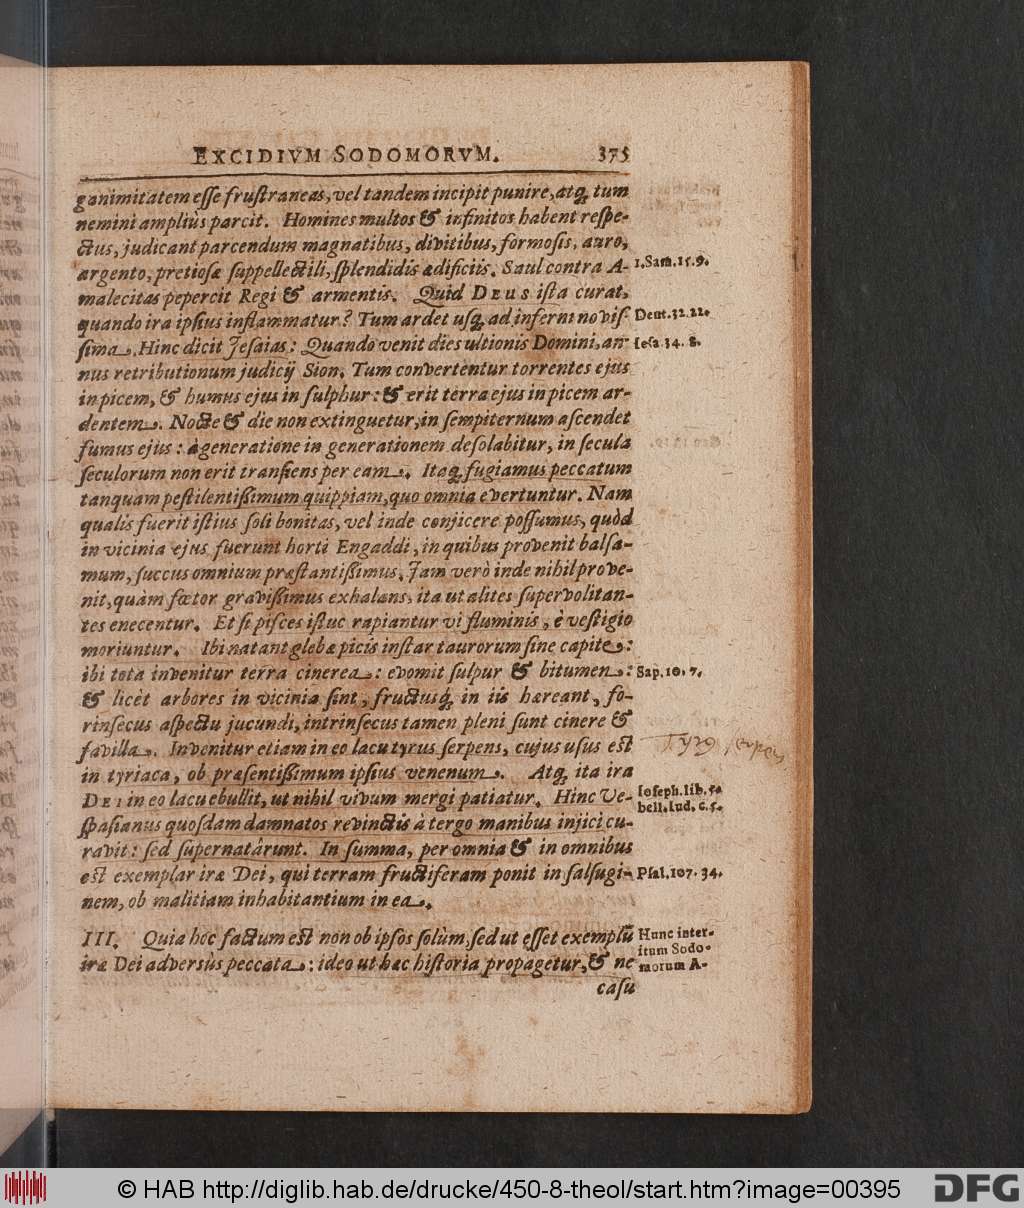 EXCIDIVM SODOMORVM. 375
ganimitatem eſſe fruſtraneas, vel tandem incipit punire, atq; tum
nemini ampliùs parcit. Homines multos & infinitos habent reſpe-
ctus, judicant parcendum magnatibus, divitibus, formoſis, auro,
argento, pretioſæ ſuppellectili, ſplendidis ædificiis. Saul contra A-
1. Sam. 15. 9.
malecitas pepercit Regi & armentis. Quid DEUS iſta curat,
quando ira ipſius inflammatur? Tum ardet uſq; ad inferni noviſ-
Deut. 32. 22.
ſima. Hinc dicit Jeſaias: Quando venit dies ultionis Domini, an-
Ieſa. 34. 8.
nus retributionum judicij Sion. Tum convertentur torrentes ejus
in picem, & humus ejus in ſulphur: & erit terra ejus in picem ar-
dentem. Nocte & die non extinguetur, in ſempiternum aſcendet
fumus ejus: à generatione in generationem deſolabitur, in ſecula
ſeculorum non erit tranſiens per eam. Itaq; fugiamus peccatum
tanquam peſtilentiſſimum quippiam, quo omnia evertuntur. Nam
qualis fuerit iſtius ſoli bonitas, vel inde conjicere poſſumus, quòd
in vicinia ejus fuerunt horti Engaddi, in quibus provenit balſa-
mum, ſuccus omnium præſtantiſſimus. Jam verò inde nihil prove-
nit, quàm fœtor graviſſimus exhalans, ita ut alites ſupervolitan-
tes enecentur. Et ſi piſces iſtuc rapiantur vi fluminis, è veſtigio
moriuntur. Ibi natant glebæ picis inſtar taurorum ſine capite:
ibi tota invenitur terra cinerea: evomit ſulpur & bitumen:
Sap. 10. 7.
& licèt arbores in vicinia ſint, fructusq; in iis hæreant, fo-
rinſecus aſpectu jucundi, intrinſecus tamen pleni ſunt cinere &
favilla. Invenitur etiam in eo lacu tyrus ſerpens, cujus uſus eſt
Tyrus ſerpens
in tyriaca, ob præſentiſſimum ipſius venenum. Atq; ita ira
DEI in eo lacu ebullit, ut nihil vivum mergi patiatur. Hinc Ve-
Ioſeph. lib. 5.
bell. Iud. c. 5.
ſpaſianus quoſdam damnatos revinctis à tergo manibus injici cu-
ravit: ſed ſupernatârunt. In ſumma, per omnia & in omnibus
eſt exemplar iræ Dei, qui terram fructiferam ponit in ſalſugi-
Pſal. 107. 34.
nem, ob malitiam inhabitantium in ea.
III. Quia hoc factum eſt non ob ipſos ſolùm, ſed ut eſſet exemplũ
Hunc inter-
itum Sodo-
iræ Dei adverſùs peccata: ideo ut hæc hiſtoria propagetur, & ne
morum A-
caſu
© HAB http://diglib.hab.de/drucke/450-8-theol/start.htm?image=00395
DFG